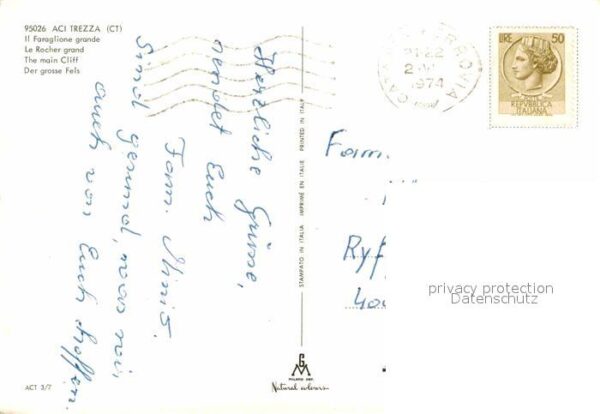 95026 ACI TREZZA (CT)
Il Faraglione grande
Le Rocher grand
The main Cliff
Der grosse Fels
Herzliche Grüsse,
sendet Euch
Fam.
Sind gesund, was wir
auch von Euch hoffen.
STAMPATO IN ITALIA IMPRIMÉ EN ITALIE PRINTED IN ITALY
CATANIA FERROVIA
1974
LIRE 50
REPVBBLICA
ITALIANA
Fam.
Ryf
privacy protection
Datenschutz
GM
Natural colours
ACT 3/7